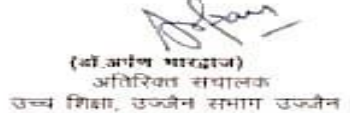 (डॉ.अर्पण भारद्वाज)
अतिरिक्त संचालक
उच्च शिक्षा, उज्जैन संभाग उज्जैन